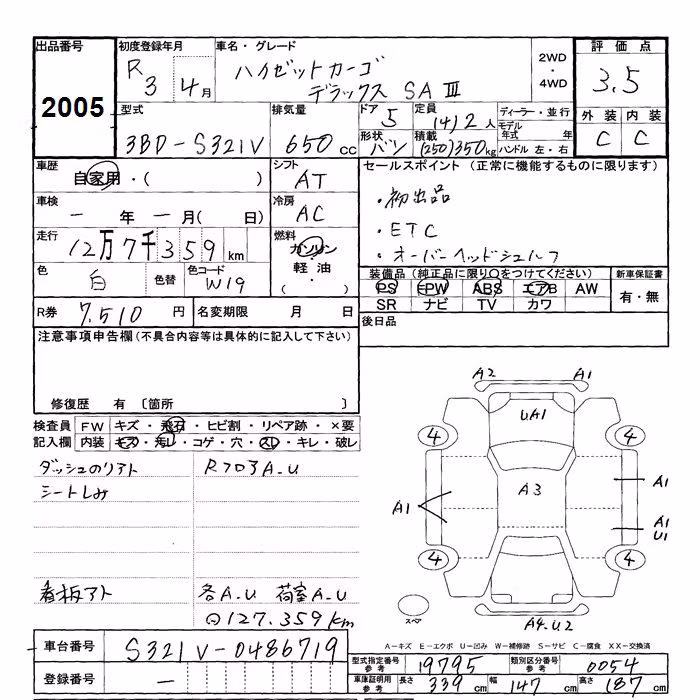 出品番号
2005
初度登録年月
R 3 4月
車名・グレード
ハイゼットカーゴ
デラックス SAⅢ
2WD
・
4WD
評価点
3.5
外装 内装
C C
型式
3BD-S321V
排気量
650 cc
ドア 5
形状 バン
定員 (4)2人
積載 (250)350kg
ディーラー・並行
モデル年式 年
ハンドル 左・右
車歴
自家用・( )
シフト
AT
車検
－年－月( 日)
冷房
AC
走行
12万7千359km
燃料
ガソリン
・
軽油
・
( )
色
白
色替
色コード
W19
R券 7.510 円
名変期限 月 日
セールスポイント (正常に機能するものに限ります)
・初出品
・ETC
・オーバーヘッドシェルフ
装備品(純正品に限り○をつけてください)
PS PW ABS エアB AW
SR ナビ TV カワ
新車保証書
有・無
後日品
注意事項申告欄(不具合内容等は具体的に記入して下さい)
修復歴 有 〔箇所 〕
検査員記入欄
FW キズ・飛石・ヒビ割・リペア跡・×要
内装 キズ・汚レ・コゲ・穴・スレ・キレ・破レ
ダッシュのリアト
シートしみ
看板アト
RフロアA.U
各A.U 荷室A.U
127.359km
A2 A1
UA1
4 4
A3
A1
A1
A1
U1
4 4
スペア
A4.U2
A－キズ E－エクボ U－凹み W－補修跡 S－サビ C－腐食 XX－交換済
車台番号 S321V-0486719
登録番号 －
型式指定番号 参考 19795
類別区分番号 参考 0054
車庫証明用 参考 長さ 339cm 幅 147cm 高さ 187cm